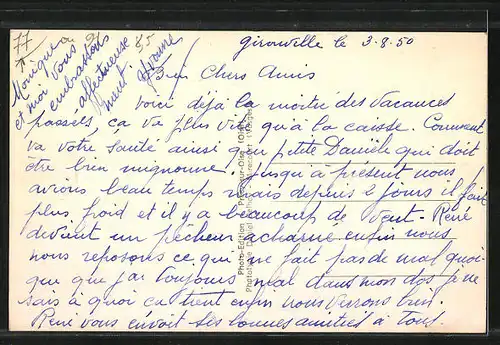 Gironville le 3-8-50
Bien Chers Amis
Voici déjà la moitié des vacances
passels, ça va plus vite qu'à la caisse. Comment
va votre santé ainsi que petite Danièle qui doit
être bien mignonne. Jusqu'à présent nous
avions beau temps mais depuis 2 jours il fait
plus froid et il y a beaucoup de vent. René
devient un pêcheur acharné, enfin nous
nous reposons ce qui ne fait pas de mal quoi-
que que j'ai toujours mal dans mon dos je ne
sais à quoi ça tient enfin nous verrons bien.
René vous envoit ses bonnes amitiés à Tous.
Monique
et moi vous
embrassons
affectueuse
ment. Yvonne
77
Photo-Edition